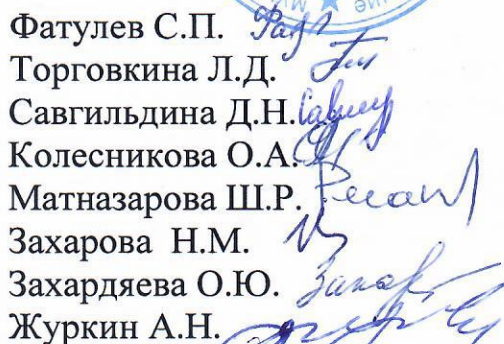 Фатулев С.П.
Торговкина Л.Д.
Савгильдина Д.Н.
Колесникова О.А.
Матназарова Ш.Р.
Захарова Н.М.
Захардяева О.Ю.
Журкин А.Н.